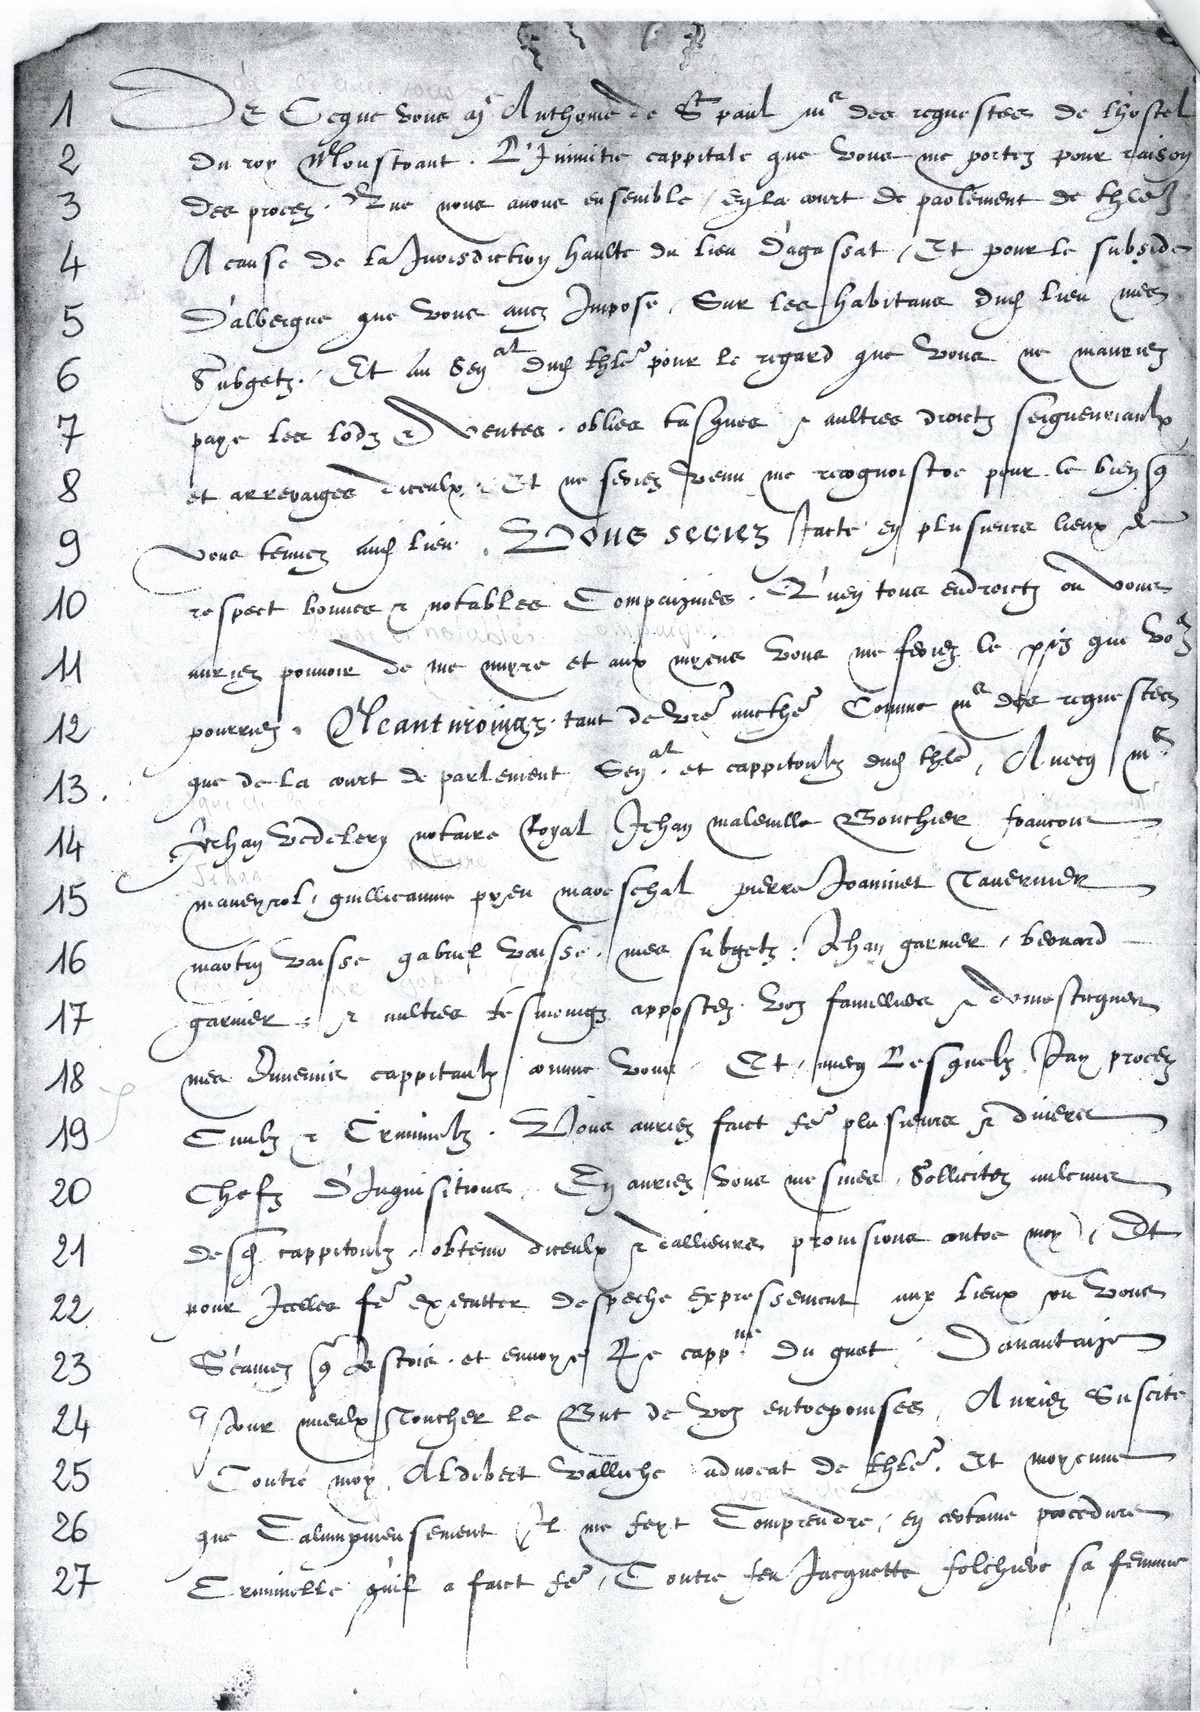 1 De Ceque vous Mr Anthoine de St paul mr des requestes de lhostel
2 du roy Monstrant. L'Inimitie cappitale que vous me portez pour raison
3 des procez. Que nous avons ensemble, en la court de parlement de thle
4 A cause de la Jurisdiction haulte du lieu d'agassat, Et pour le subside
5 D'albergue que vous avez Impose, Sur les habitans dud lieu mes
6 Subgetz. Et au Sen.al dud thle pour le regard que vous ne mauriez
7 paye les lodz & ventes. oblies tasques & aultres droictz seigneuriaulx
8 et arreraiges diceulx. Et ne seriez venu me recognoistre pour le bien q
9 vous tennez aud lieu. Vous seriez Jacte en plusieurs lieux de
10 respect bonnes & notables Compaignies. Qu'en tous endroictz ou vous
11 auriez pouvoir de me nuyre et aux myens vous me feriez le pis que vo
12 pourriez. Neantmoings. tant de vre aucthe Comme mr des requestes
13. que de la court de parlement Sen.al et cappitoulz dud thle, Avecq mr
14 Jehan Vedelery notaire Royal Jehan maleville Bouchier francois
15 maneyrol, guilleaume pyeu mareschal pierre Joaninet Tavernier
16 martin vaisse gabriel vaisse. mes subgetz. Jehan garnier, bernard
17 garnier & aultres tesmoingz appostez. voz famelliers & domesticques
18 mes Ennemis cappitaulx comme vous. Et avecq Lesquelz Jay procez
19 Civilz & Criminelz. Vous auriez faict fe plusieurs & divers
20 Chefz D'Inquisitions, En auriez vous mesmes Sollicitez aulcuns
21 desq cappitoulz. obtenu diceulx & dallieurs provisions contre moy, Et
22 pour Icelles fe executter despeche expressement aux lieux ou vous
23 Scavez q Jestois. et envoye Le capp.ne du guet. Davantaije
24 pour mieulx Toucher le But de voz entreprinses, Auriez Suscite
25 Contre moy Aldibert Valliche advocat de thle. Et moyenne
26 que Calumpnieusement Il me feyt Comprendre, en certaine procedure
27 Criminelle quil a faict fe, Contre feu Jacquette folchiere sa femme